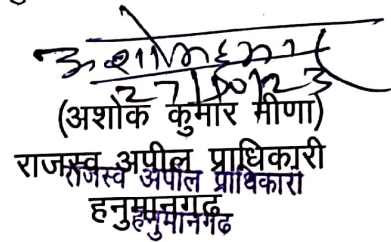 (अशोक कुमार मीणा)
राजस्व अपील प्राधिकारी
राजस्व अपील प्राधिकारी
हनुमानगढ़
हनुमानगढ